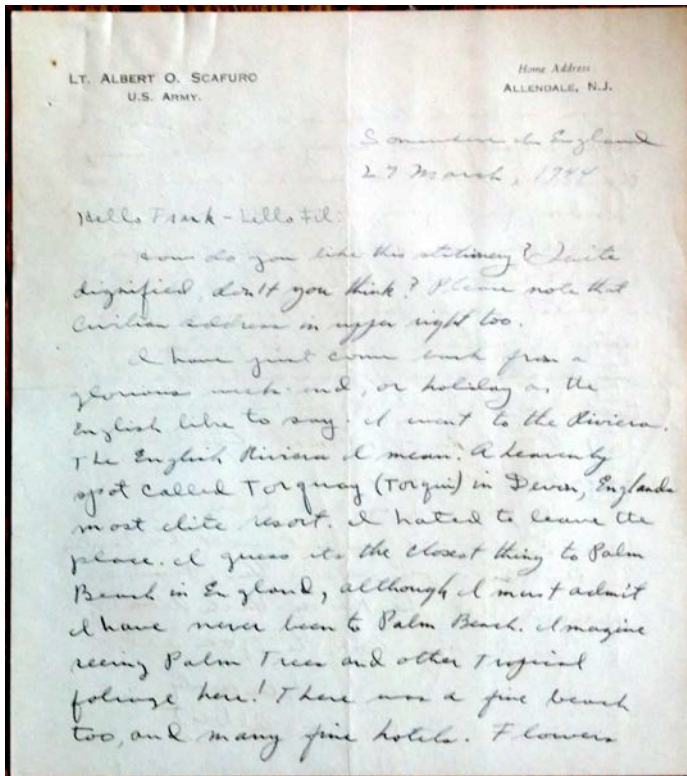 LT. ALBERT O. SCAFURO
U.S. ARMY.
Home Address
ALLENDALE, N.J.
Somewhere in England
27 March, 1944
Hello Frank – Hello Fil:
How do you like this stationery? Quite
dignified, don't you think? Please note that
civilian address in upper right too.
I have just come back from a
glorious week-end, or holiday as the
English like to say. I went to the Riviera.
The English Riviera I mean. A heavenly
spot called Torquay (Torquii) in Devon, Englands
most elite resort. I hated to leave the
place. I guess its the closest thing to Palm
Beach in England, although I must admit
I have never been to Palm Beach. Imagine
seeing Palm Trees and other Tropical
foliage here! There was a fine beach
too, and many fine hotels. Flowers